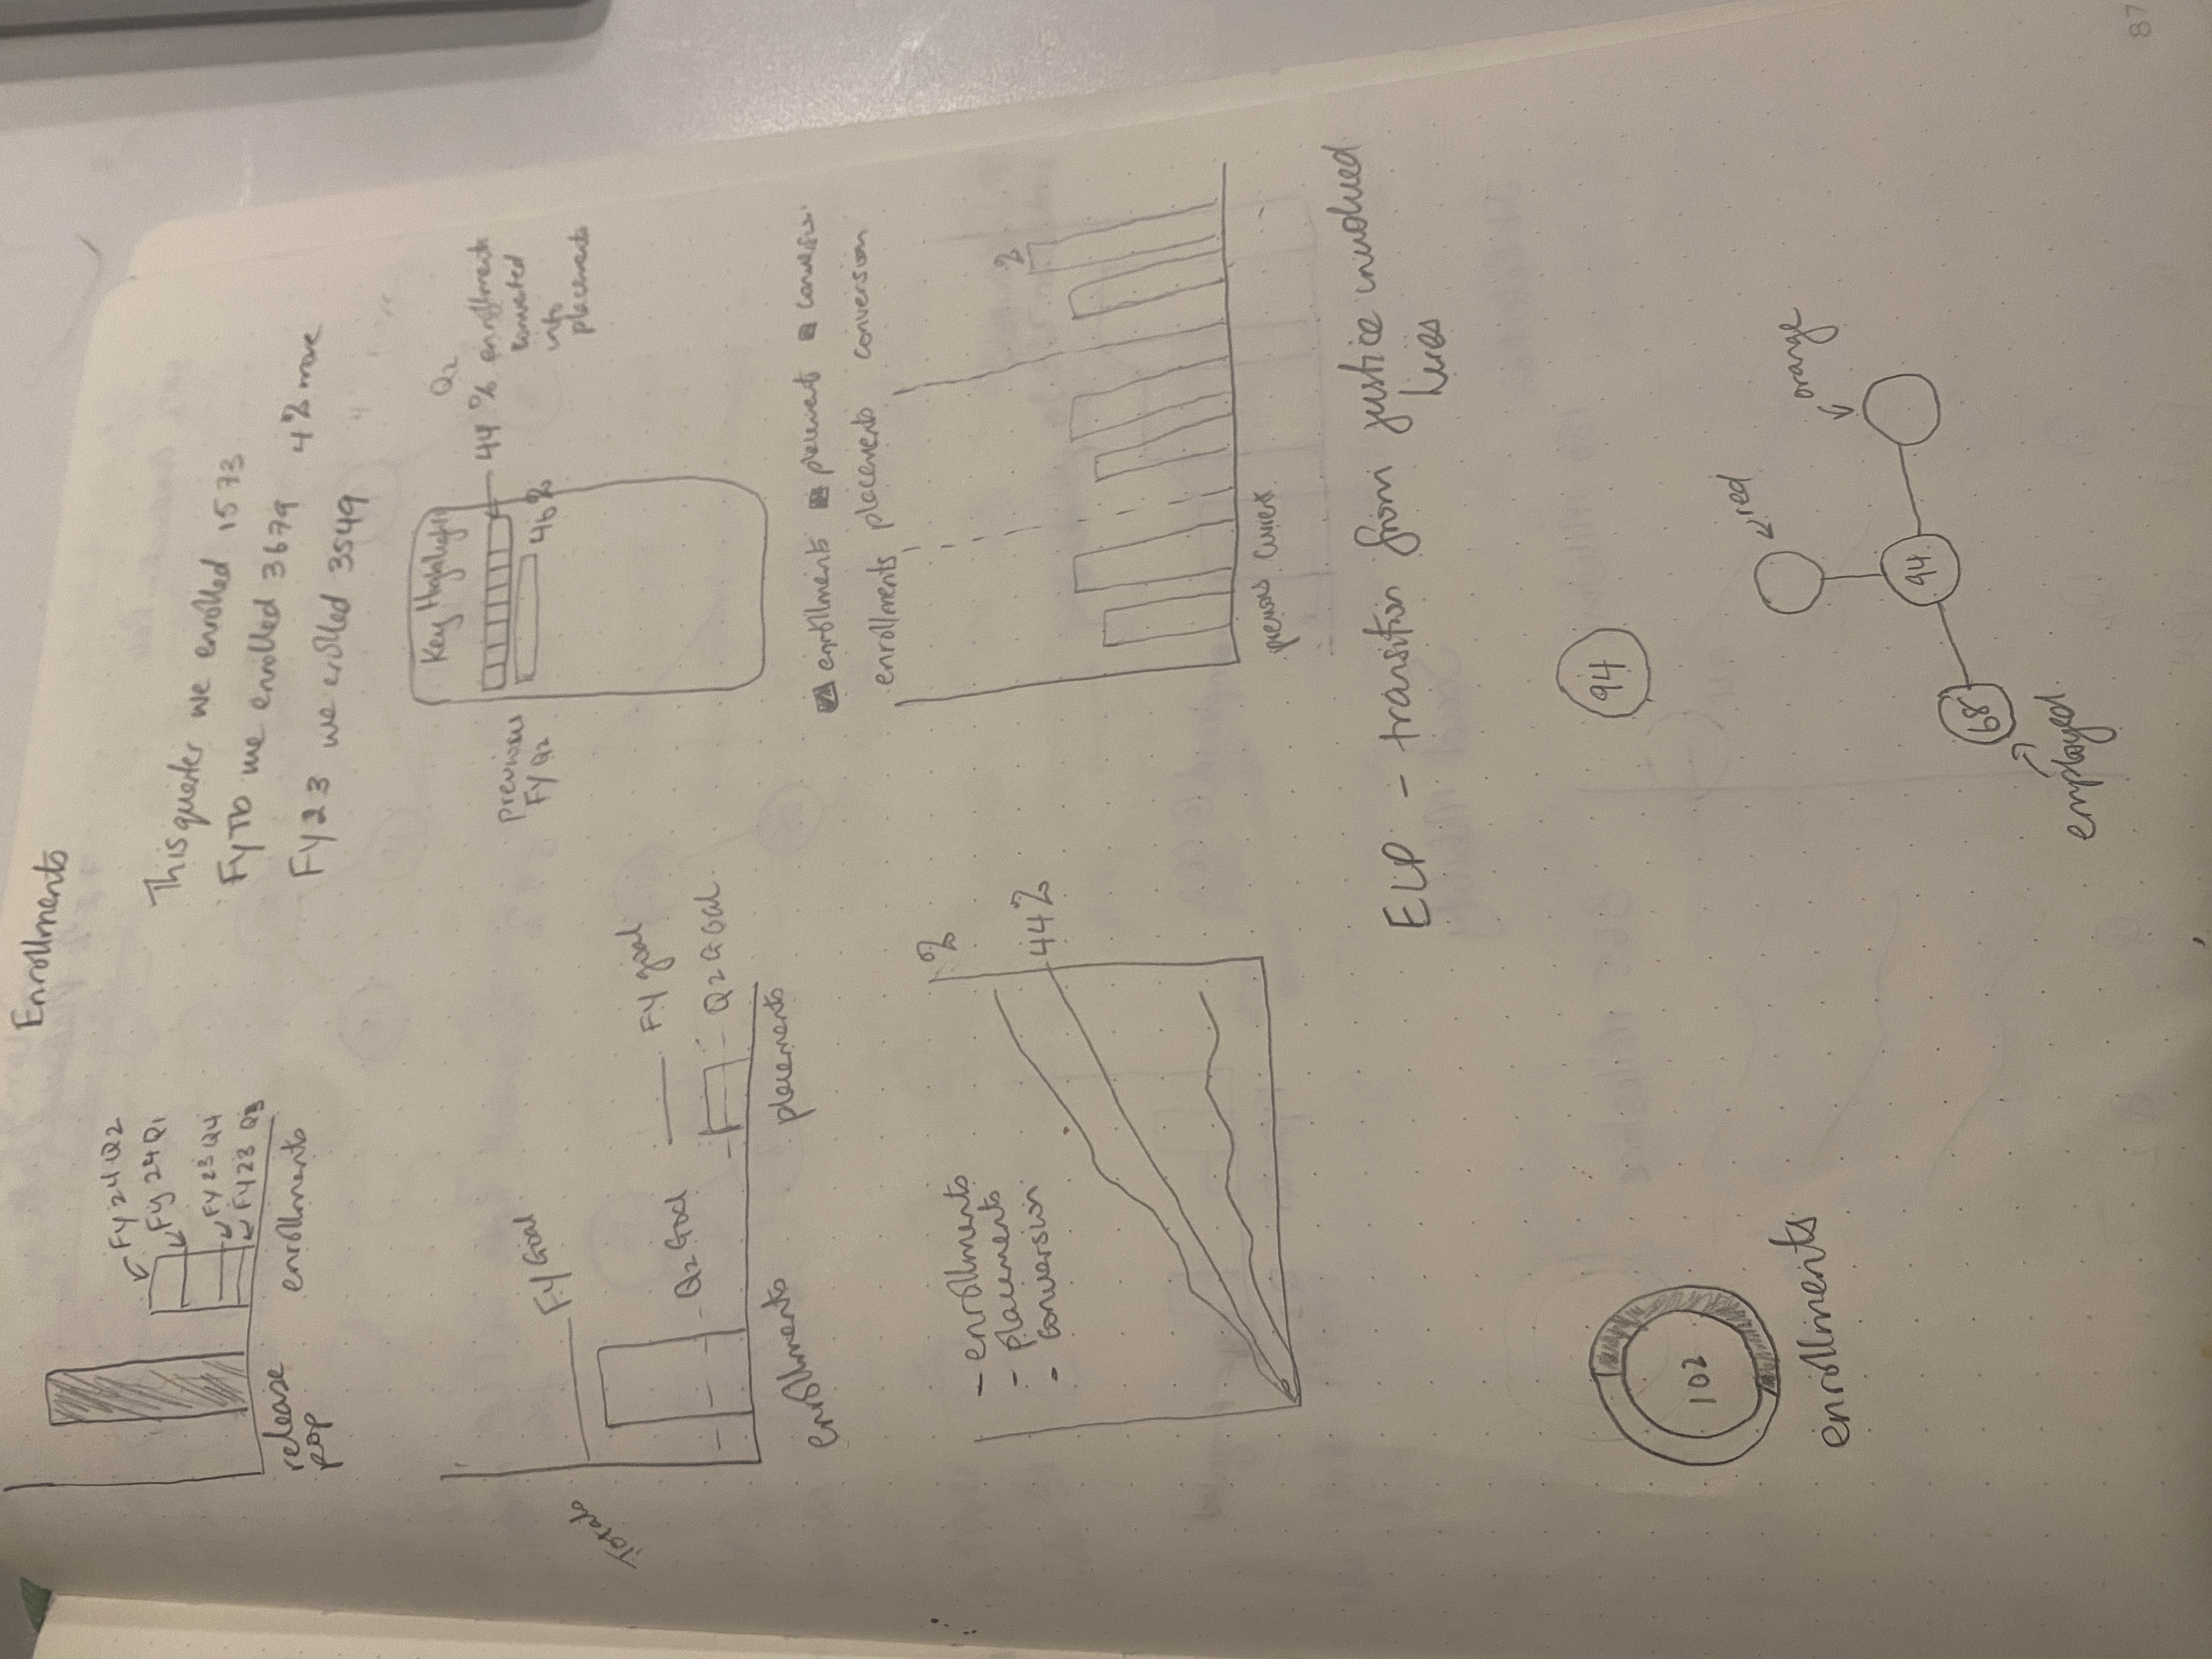 Enrollments
FY 24 Q2
FY 24 Q1
FY 23 Q4
FY 23 Q3
release
pop
enrollments
This quarter we enrolled 1573
FYTD we enrolled 3679 4% more
FY23 we erolled 3549
Totals
FY Goal
Q2 Goal
FY goal
Q2 GOal
enrollments
placements
Key Highlights
previous
FY Q2
Q2
44 % enrollments
converted
into
placements
46%
enrollments placements conversion
enrollments placements conversion
%
previous current
- enrollments
- placements
- conversion
%
44%
ELP - transition from justice involved
lives
102
enrollments
94
red
orange
94
68
employed
87